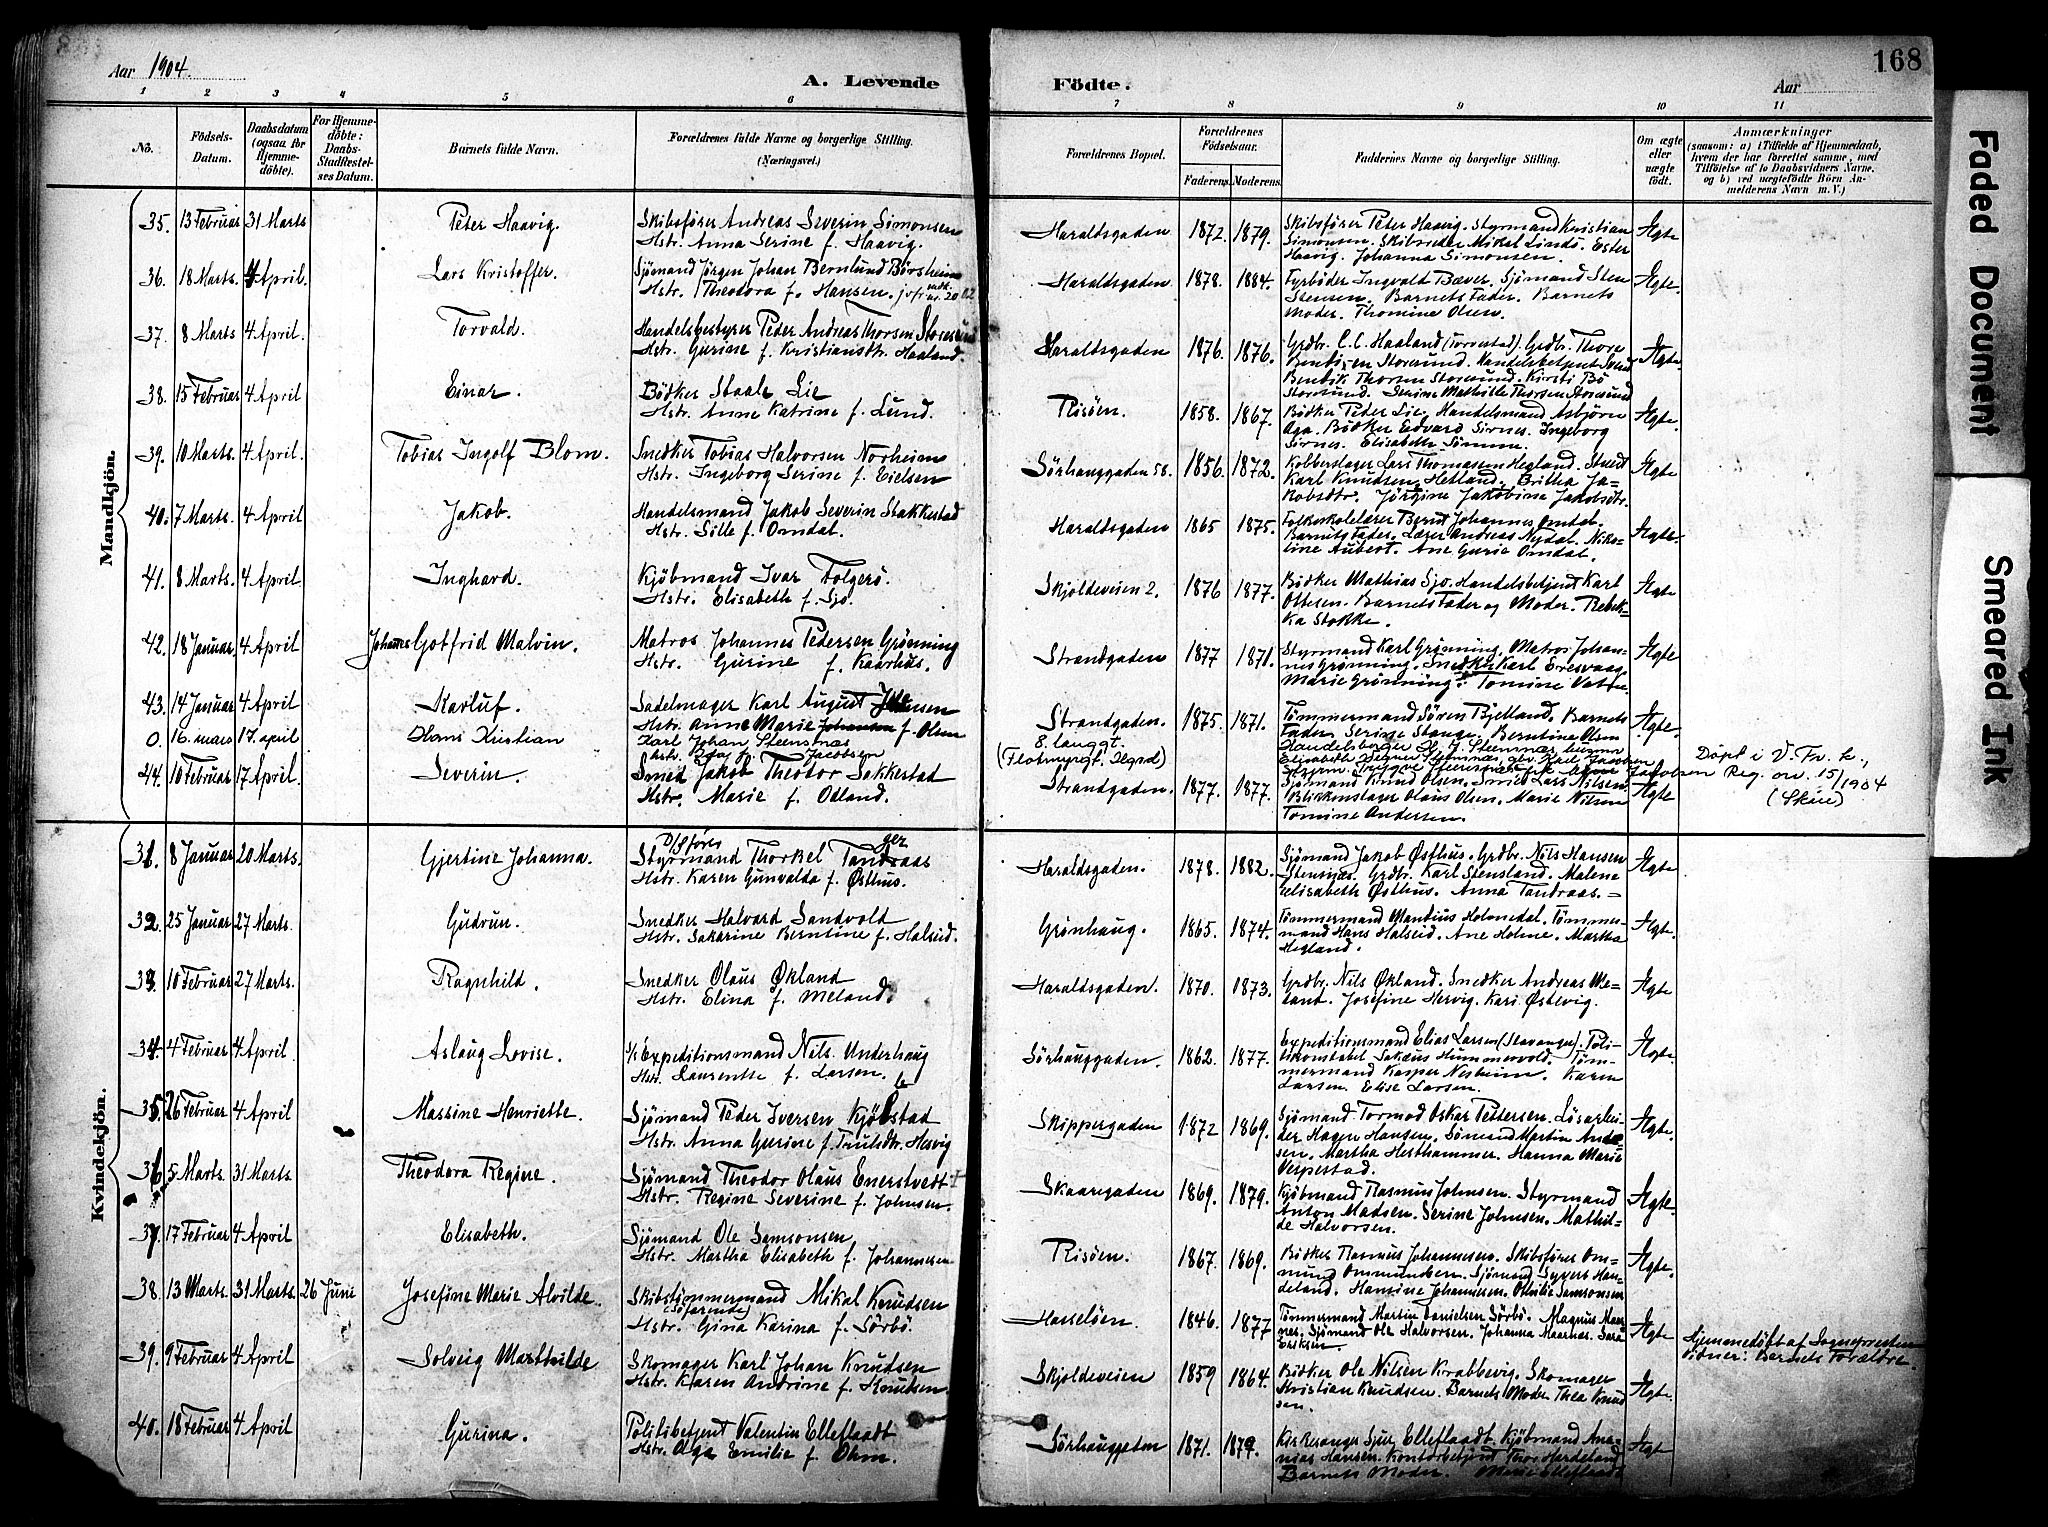 Aar 1904.
A. Levende
Födte.
Aar
168
1 2 3 4 5 6 7 8 9 10 11
No.
Födsels-Datum.
Daabsdatum (ogsaa for Hjemme-döbte).
For Hjemme-döbte: Daabs-Stadfæstel-ses Datum.
Barnets fulde Navn.
Forældrenes fulde Navne og borgerlige Stilling. (Næringsvei.)
Forældrenes Bopæl.
Forældrenes Födselsaar.
Faderens. Moderens.
Faddernes Navne og borgerlige Stilling.
Om ægte eller uægte födt.
Anmærkninger
(saasom: a) i Tilfælde af Hjemmedaab, hvem der har forrettet samme, med Tilföielse af to Daabsvidners Navne, og b) ved uægtefödte Börn An-melderens Navn m. V.)
Mandkjön.
35. 13 Februar 31 Marts Peter Haavig. Skibsfører Andreas Severin Simonsen
Hstr. Anna Serine f. Haavig. Haraldsgaden 1872. 1879. Skibsfører Peter Haavig. Styrmand Kristian
Simonsen. Skibsreder Mikal Lindø. Ester
Haavig. Johanna Simonsen. Ægte
36. 18 Marts 4 April. Lars Kristoffer. Sjömand Jörgen Johan Bernlund Børsheim
Hstr. Theodora f. Hansen. Haraldsgaden 1878. 1884. Fyrbøder Ingvald Bæver. Sjömand Sten
Stensen. Barnets Fader. Barnets
Moder. Thomine Olsen. Ægte.
37. 8 Marts 4 April. Torvald. Handelsbestyrer Peder Andreas Thorsen Storesund
Hstr. Gurine f. Kristiansdtr. Haaland. Haraldsgaden 1876. 1876. Grdbr. C. C. Haaland (Torvestad). Grdbr. Thore
Bentsen Storesund. Handelsbetjent Svend
Bendik Thorsen Storesund. Kirsti Bö
Storesund. Serine Mathilde Thorsen Storesund Ægte.
38. 15 Februar 4 April Einar. Bödker Staale Lie
Hstr. Anne Katrine f. Lund. Risöen. 1858. 1867. Bödker Peder Lie. Handelsmand Asbjörn
Aga. Bödker Edvard Sirnes. Ingeborg
Sirnes. Elisabeth Sömme. Ægte.
39. 10 Marts. 4 April. Tobias Ingolf Blom. Snedker Tobias Halvorsen Norheim
Hstr. Ingeborg Serine f. Eielsen Sörhauggaden 58. 1856. 1872. Kobberslager Lars Thomasen Hegland.
Karl Knudsen Hetland. Britha Ja-
kobsdtr. Jörgine Jakobine Jakobsdtr. Ægte
40. 7 Marts. 4 April Jakob. Handelsmand Jakob Severin Stakkestad
Hstr. Sille f. Omdal. Haraldsgaden 1865 1875. Folkeskolelærer Bernt Johannes Omdal.
Barnets Fader. Lærer Andreas Nydal. Niko-
line Aubert. Ane Gurie Omdal. Ægte.
41. 8 Marts. 4 April Inghard. Kjöbmand Ivar Folgerö.
Hstr. Elisabeth f. Sjo. Skjoldeveien 2. 1876 1877. Bödker Mathias Sjo. Handelsbetjent Karl
Ottesen. Barnets Fader og Moder. Rebek-
ka Stokke. Ægte
42. 18 Januar 4 April Johannes Gotfrid Malvin. Matros Johannes Pedersen Grönning
Hstr. Gurine f. Kaarhus. Strandgaden 1877 1871. Styrmand Karl Grönning. Matros Johan-
nes Grönning. Snedker Karl Eresvaag.
Marie Grönning. Tomine Vatne. Ægte
43. 14 Januar 4 April Karluf. Sadelmager Karl August Jensen
Hstr. Anne Marie Johanna f. Olsen Strandgaden. 1875. 1871. Tömmermand Sören Bjelland. Barnets
Fader. Serine Stange. Berntine Olsen Ægte.
0. 16. mars 17. april Hans Kristian Karl Johan Steensnæs
f. Jacobsen 8. langgt.
(Flotmyrgt. Hgsd) Döpt i V. Fr. k.,
Reg. nr. 15/1904
(Skåre)
44. 10 Februar 17 April. Severin. Smed Jakob Theodor Sakkestad
Hstr. Marie f. Odland. Strandgaden. 1877. 1877. Sjömand Knud Olsen. Smed Lars Nilsen.
Blikkenslager Olaus Olsen. Marie Nilsen
Tomine Andersen. Ægte
Kvindekjön.
31. 8 Januar 20 Marts. Gjertine Johanna. D/Sförer
Styrmand Thorkel Tandraas
Hstr. Karen Gunvalda f. Østhus. Haraldsgaden. 1878. 1882. Sjömand Jakob Østhus. Grdbr. Nils Hansen
Stensnæs. Grdbr. Karl Stensland. Malene
Elisabeth Østhus. Anna Tandraas. Ægte
32. 25 Januar 27 Marts. Gudrun. Snedker Halvard Sandvold
Hstr. Sakarine Berntine f. Halseid. Grönhaug. 1865. 1874. Tömmermand Mantius Holmedal. Tömmer-
mand Hans Halseid. Ane Holme. Martha
Hegland. Ægte.
33. 10 Februar 27 Marts. Ragnhild. Snedker Olaus Økland
Hstr. Elina f. Meland. Haraldsgaden. 1870. 1873. Grdbr. Nils Økland. Snedker Andreas Me-
land. Josefine Hervig. Kari Østevig. Ægte
34. 4 Februar 4 April. Aslaug Lovise. Expeditionsmand Nils Underhaug
Hstr. Laurentse f. Larsen. Sörhauggaden. 1862. 1877. Expeditionsmand Elias Larsen (Stavanger). Poli-
tikonstabel Sakæus Hummervold. Töm-
mermand Kasper Nesheim. Karen
Larsen. Elise Larsen. Ægte.
35. 26 Februar 4 April Massine Henriette. Sjömand Peder Iversen Kjöllestad
Hstr. Anna Gurine f. Trulsdtr. Hervig Skippergaden 1872 1869. Sjömand Tormod Oskar Pettersen. Lösarbei-
der Hagen Hansen. Sömand Martin Ander-
sen. Martha Hesthammer. Hanna Marie
Vespestad. Ægte.
36 5 Marts. 31 Marts Theodora Regine. Sjömand Theodor Olaus Enerstvedt
Hstr. Regine Severine f. Johnsen. Skaaregaden 1869. 1879. Kjöbmand Rasmus Johnsen. Styrmand
Anton Madsen. Serine Johnsen. Mathil-
de Halvorsen. Ægte.
37. 17 Februar 4 April Elisabeth. Sjömand Ole Samsonsen
Hstr. Martha Elisabeth f. Johannesen Risöen. 1867. 1869. Bödker Rasmus Johannesen. Skibsförer Om-
mund Ommundsen. Sjömand Syvert Han-
deland. Hansine Johannesen. Othilie Samsonsen Ægte.
38. 13 Marts. 31 Marts. 26 Juni Josefine Marie Alvilde. Skibstömmermand Mikal Knudsen
(Söfarende)
Hstr. Gina Karina f. Sörbö. Hasselöen. 1846. 1877 Tömmermand Martin Danielsen Sörbö. Magnus Maar-
nes. Sjömand Ole Halvorsen. Johanna Maarnes. Sara
Eriksen. Ægte Hjemmedöbt af Sognepresten
Vidner: Barnets Forældre.
39. 9 Februar 4 April Solveig Marthilde Skomager Karl Johan Knudsen
Hstr. Karen Andrine f. Knutsen. Skjoldeveien 1859 1864. Bödker Ole Nilsen Krabbevig. Skomager
Kristian Knudsen. Barnets Moder. Thea Knud
sen. Ægte.
40. 18 Februar 4 April Gurina. Politibetjent Valentin Elleflaadt
Hstr. Olga Emilie f. Ohm. Sörhauggaden 1871. 1879. Kirkesanger Sjur Elleflaadt. Kjöbmand Ana-
nias Hansen. Kontorbetjent Thor Hardeland
Barnets Moder. Marie Elleflaadt Ægte
Faded Document
Smeared Ink